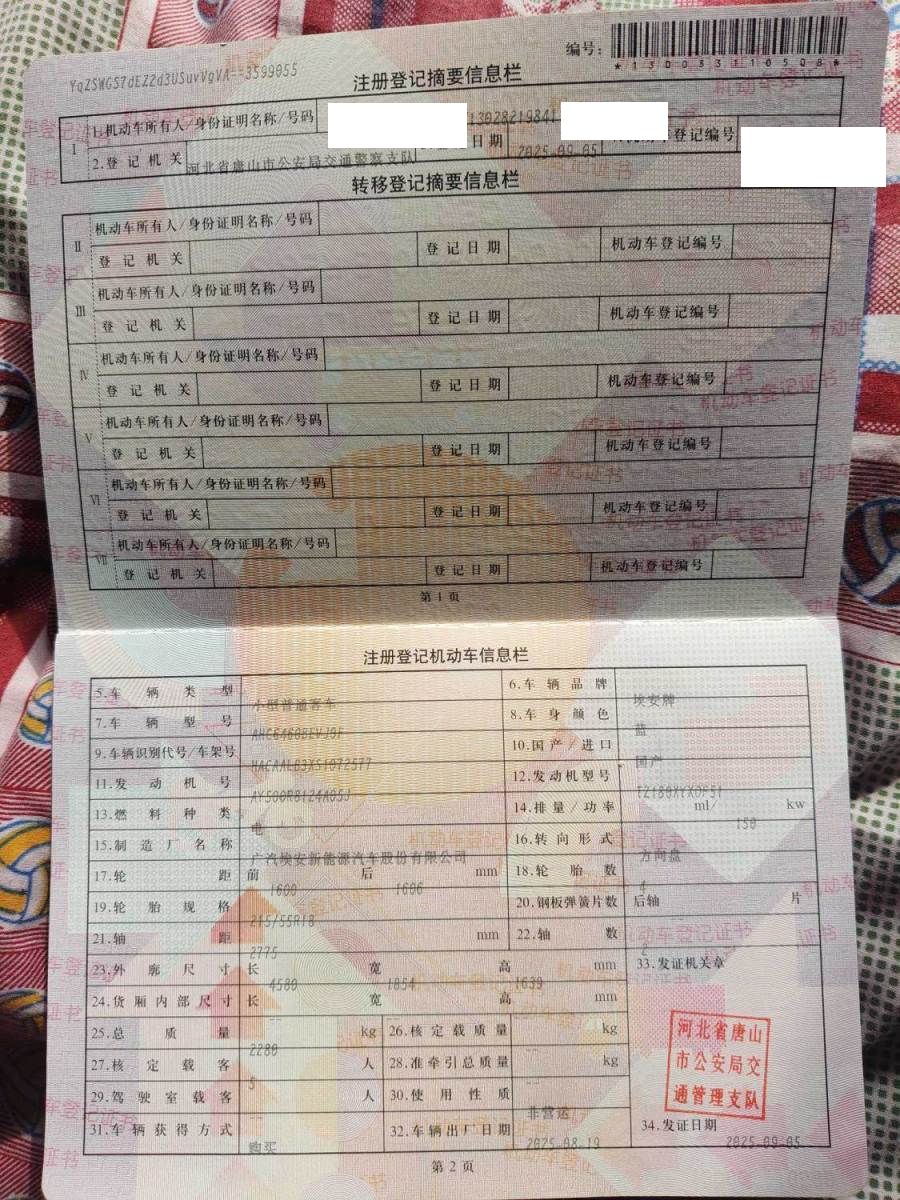 YqZSWG57dEZ2d3USuvVgVA==3599055
编号:
*130033110508*
注册登记摘要信息栏
I 1.机动车所有人/身份证明名称/号码 13028219841
2.登记机关 河北省唐山市公安局交通警察支队 日期 2025-09-05 登记编号
转移登记摘要信息栏
II 机动车所有人/身份证明名称/号码
登记机关 登记日期 机动车登记编号
III 机动车所有人/身份证明名称/号码
登记机关 登记日期 机动车登记编号
IV 机动车所有人/身份证明名称/号码
登记机关 登记日期 机动车登记编号
V 机动车所有人/身份证明名称/号码
登记机关 登记日期 机动车登记编号
VI 机动车所有人/身份证明名称/号码
登记机关 登记日期 机动车登记编号
VII 机动车所有人/身份证明名称/号码
登记机关 登记日期 机动车登记编号
第1页
注册登记机动车信息栏
5.车辆类型 小型普通客车 6.车辆品牌 埃安牌
7.车辆型号 AHC6460BEVJ0F 8.车身颜色 蓝
9.车辆识别代号/车架号 10.国产/进口 国产
11.发动机号 AY500RB124A05J 12.发动机型号
13.燃料种类 电 14.排量/功率 ml/ 150 kw
15.制造厂名称 广汽埃安新能源汽车股份有限公司 16.转向形式 方向盘
17.轮距 前 1600 后 1606 mm 18.轮胎数 4
19.轮胎规格 215/55R18 20.钢板弹簧片数 后轴 片
21.轴距 2775 mm 22.轴数 2
23.外廓尺寸 长 4580 宽 1854 高 1639 mm 33.发证机关章
24.货厢内部尺寸 长 -- 宽 -- 高 -- mm
25.总质量 2280 kg 26.核定载质量 -- kg
27.核定载客 5 人 28.准牵引总质量 -- kg
29.驾驶室载客 -- 人 30.使用性质 非营运
31.车辆获得方式 购买 32.车辆出厂日期 2025-08-19 34.发证日期 2025-09-05
河北省唐山
市公安局交
通管理支队
第2页